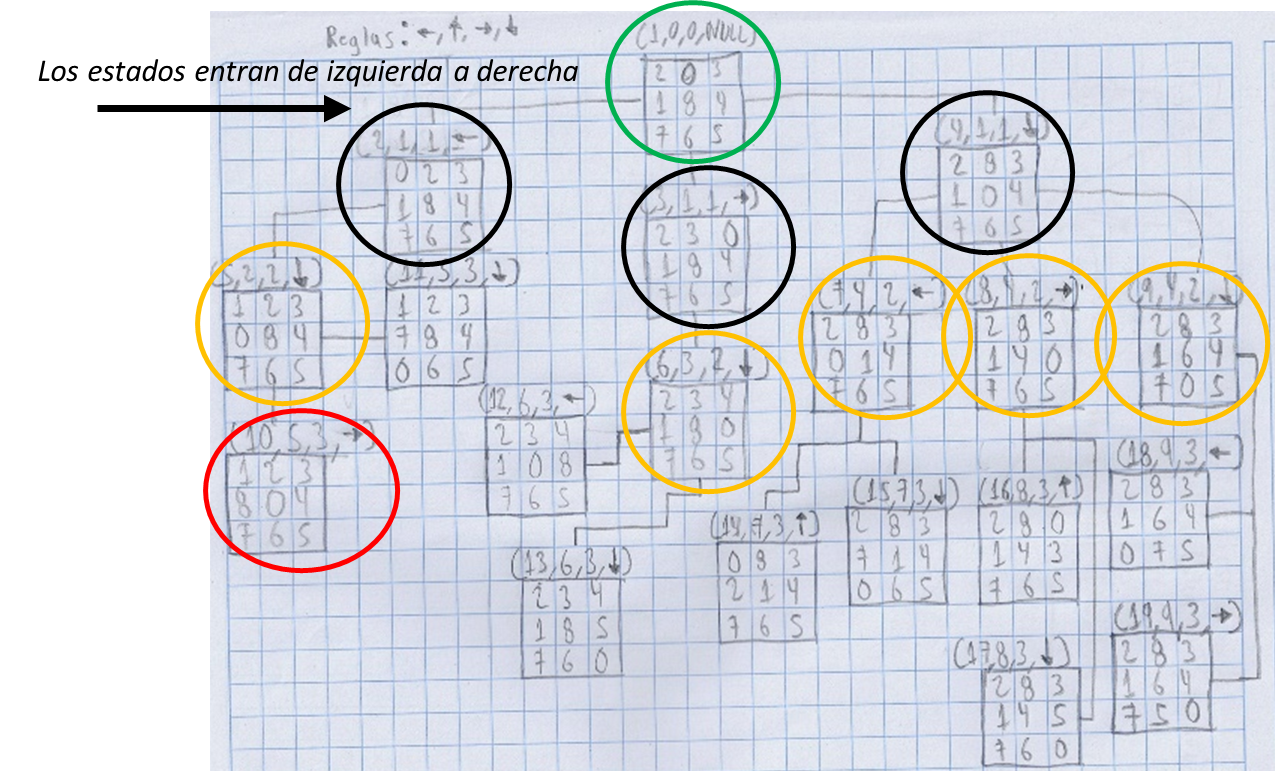 Reglas: ←, ↑, →, ↓
Los estados entran de izquierda a derecha
(1,0,0,NULL)
2 0 3
1 8 4
7 6 5
(2,1,1,←)
0 2 3
1 8 4
7 6 5
(3,1,1,→)
2 3 0
1 8 4
7 6 5
(4,1,1,↓)
2 8 3
1 0 4
7 6 5
(5,2,2,↓)
1 2 3
0 8 4
7 6 5
(11,5,3,↓)
1 2 3
7 8 4
0 6 5
(6,3,2,↓)
2 3 4
1 8 0
7 6 5
(7,4,2,←)
2 8 3
0 1 4
7 6 5
(8,4,2,→)
2 8 3
1 4 0
7 6 5
(9,4,2,↓)
2 8 3
1 6 4
7 0 5
(10,5,3,→)
1 2 3
8 0 4
7 6 5
(12,6,3,←)
2 3 4
1 0 8
7 6 5
(13,6,3,↓)
2 3 4
1 8 5
7 6 0
(14,7,3,↑)
0 8 3
2 1 4
7 6 5
(15,7,3,↓)
2 8 3
7 1 4
0 6 5
(16,8,3,↑)
2 8 0
1 4 3
7 6 5
(17,8,3,↓)
2 8 3
1 4 5
7 6 0
(18,9,3,←)
2 8 3
1 6 4
0 7 5
(19,9,3,→)
2 8 3
1 6 4
7 5 0